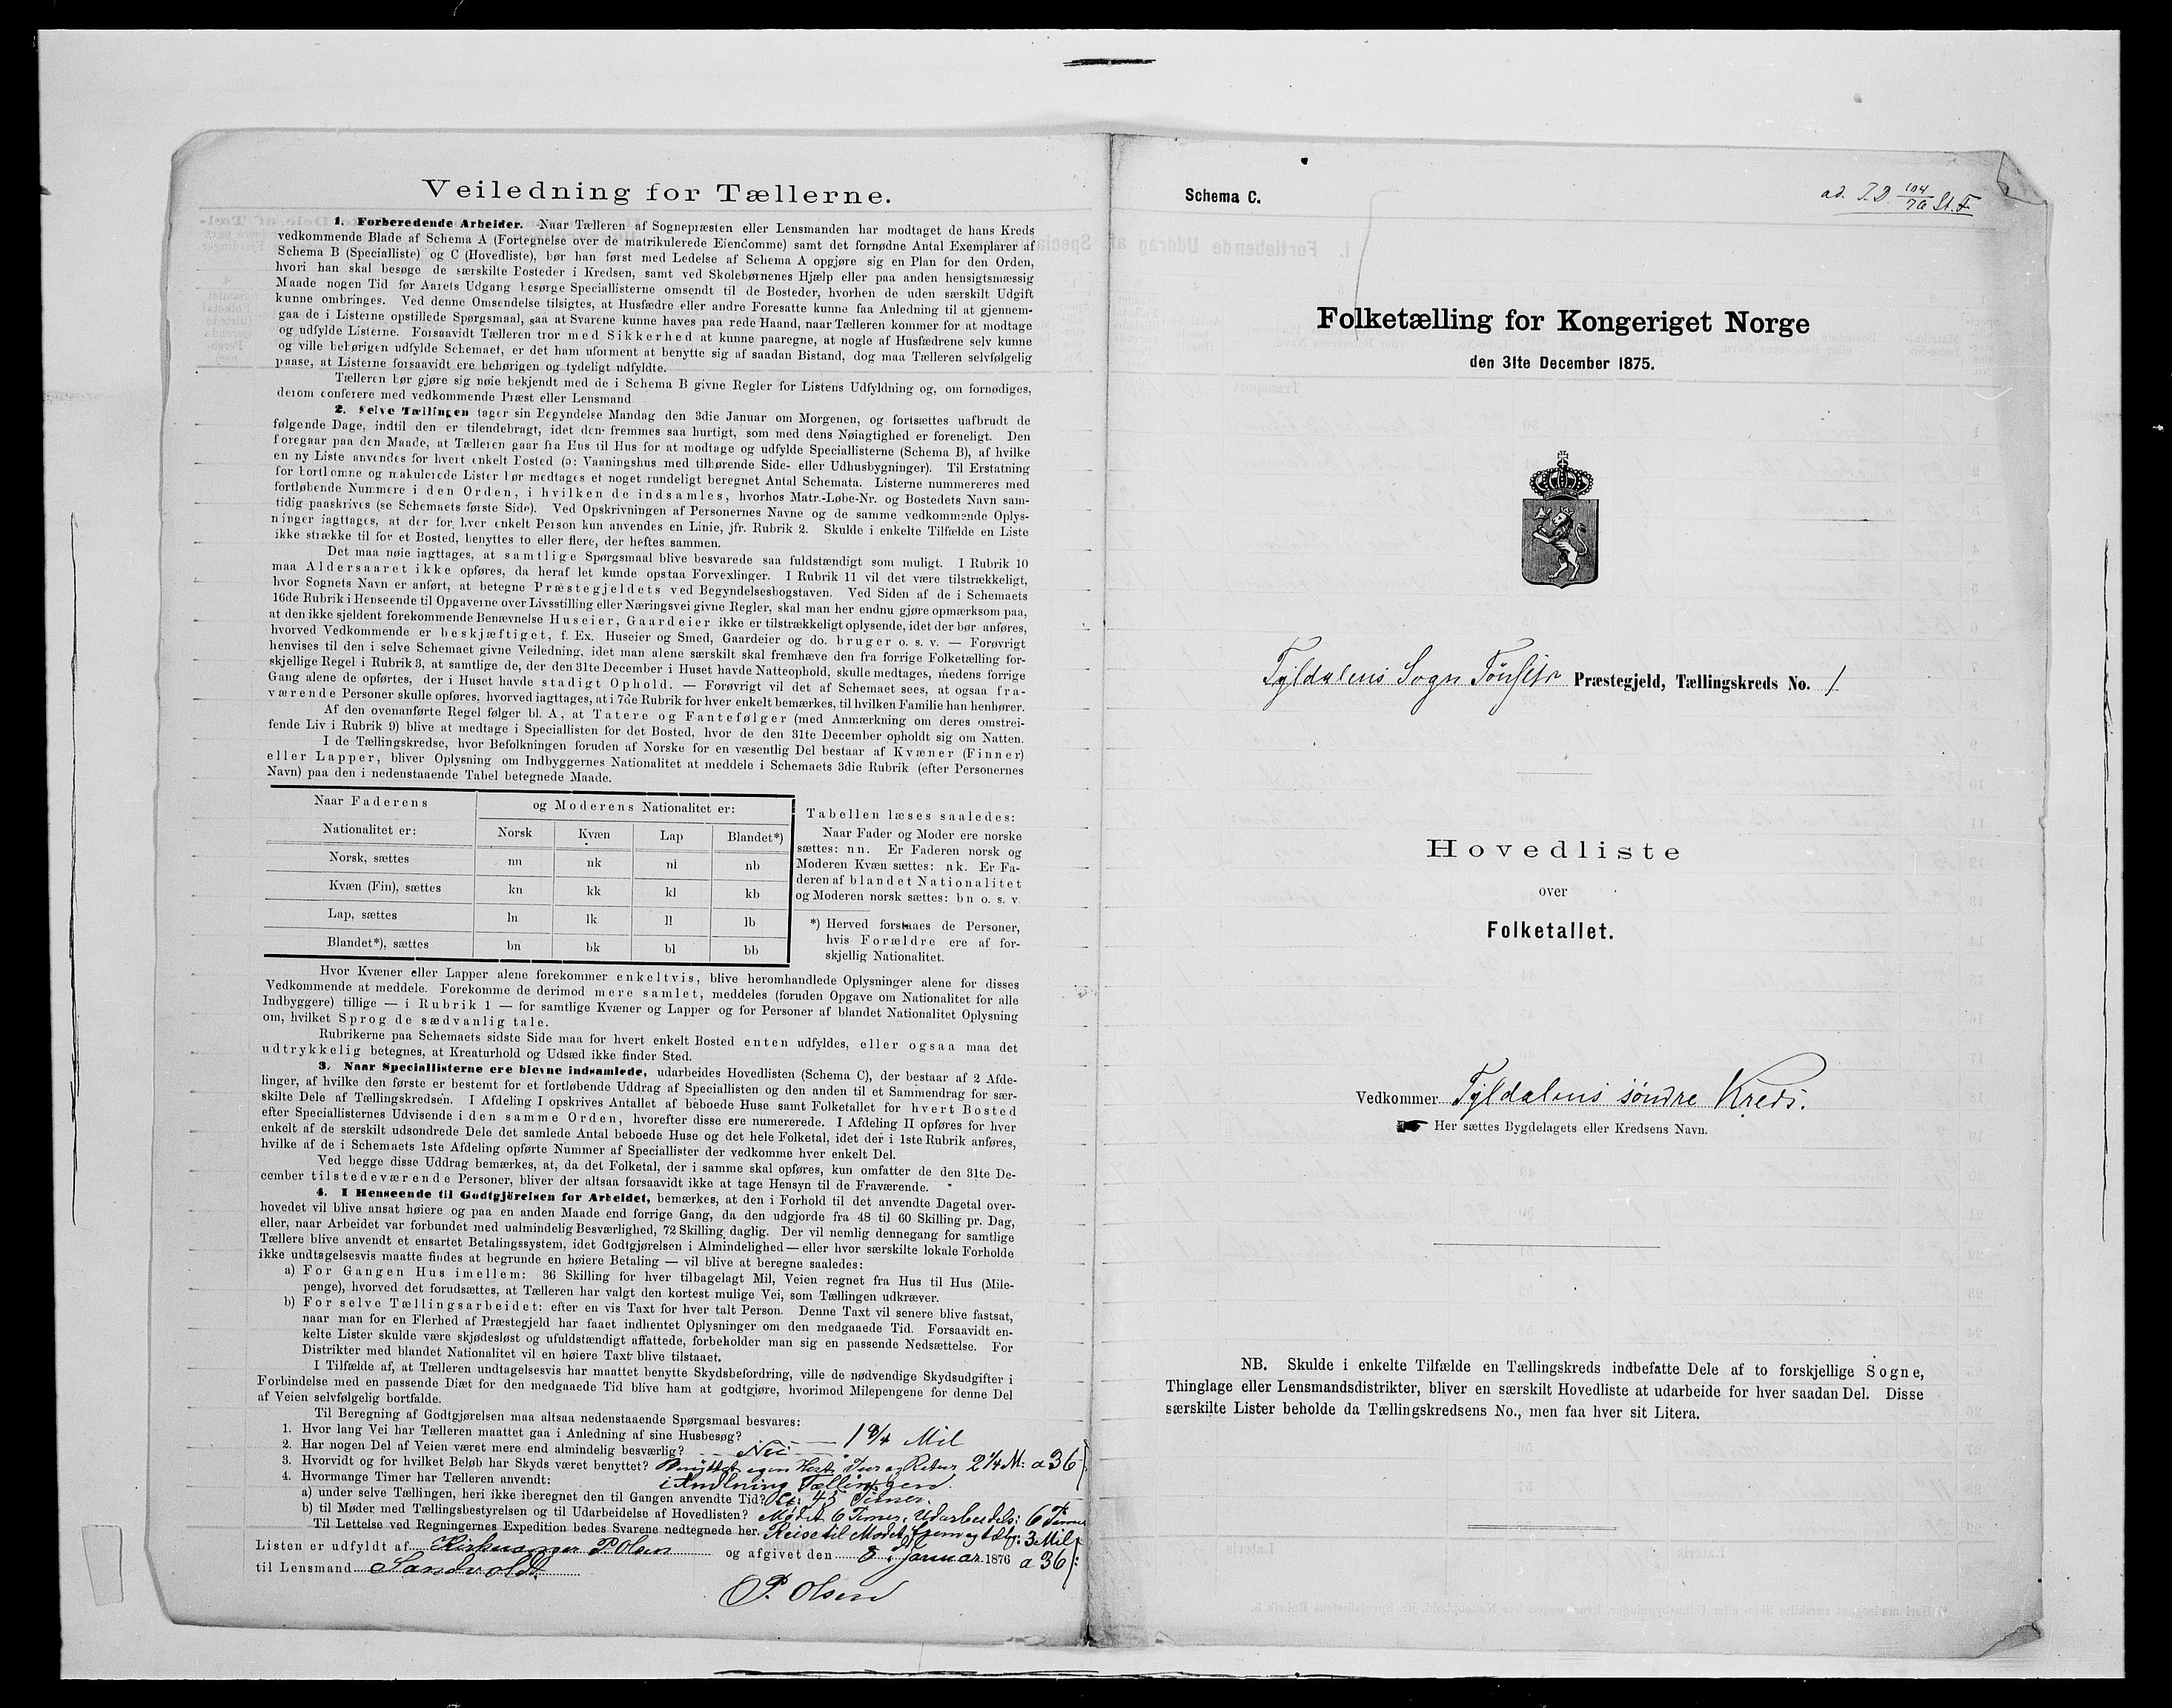 Veiledning for Tællerne.
1. Forberedende Arbeider. Naar Tælleren af Sognepræsten eller Lensmanden har modtaget de hans Kreds
vedkommende Blade af Schema A (Fortegnelse over de matrikulerede Eiendomme) samt det fornødne Antal Exemplarer af
Schema B (Specialliste) og C (Hovedliste), bør han først med Ledelse af Schema A opgjøre sig en Plan for den Orden,
hvori han skal besøge de særskilte Bosteder i Kredsen, samt ved Skolebørnenes Hjælp eller paa anden hensigtsmæssig
Maade nogen Tid før Aarets Udgang besørge Speciallisterne omsendt til de Bosteder, hvorhen de uden særskilt Udgift
kunne ombringes. Ved denne Omsendelse tilsigtes, at Husfædre eller andre Foresatte kunne faa Anledning til at gjennem-
gaa de i Listerne opstillede Spørgsmaal, saa at Svarene kunne haves paa rede Haand, naar Tælleren kommer for at modtage
og udfylde Listerne. Forsaavidt Tælleren tror med Sikkerhed at kunne paaregne, at nogle af Husfædrene selv kunne
og ville behørigen udfylde Schemaet, er det ham uforment at benytte sig af saadan Bistand, dog maa Tælleren selvfølgelig
paase, at Listerne forsaavidt ere behørigen og tydeligt udfyldte.
Tælleren bør gjøre sig nøie bekjendt med de i Schema B givne Regler for Listens Udfyldning og, om fornødiges,
derom conferere med vedkommende Præst eller Lensmand
2. Selve Tællingen tager sin Begyndelse Mandag den 3die Januar om Morgenen, og fortsættes uafbrudt de
følgende Dage, indtil den er tilendebragt, idet den fremmes saa hurtigt, som med dens Nøiagtighed er foreneligt. Den
foregaar paa den Maade, at Tælleren gaar fra Hus til Hus for at modtage og udfylde Speciallisterne (Schema B), af hvilke
en ny Liste anvendes for hvert enkelt Bosted (ɔ: Vaaningshus med tilhørende Side- eller Udhusbygninger). Til Erstatning
for bortkomne og makulerede Lister bør medtages et noget rundeligt beregnet Antal Schemata. Listerne nummereres med
fortløbende Nummere i den Orden, i hvilken de indsamles, hvorhos Matr.-Løbe-Nr. og Bostedets Navn sam-
tidig paaskrives (se Schemaets første Side). Ved Opskrivningen af Personernes Navne og de samme vedkommende Oplys-
ninger iagttages, at der for hver enkelt Person kun anvendes en Linie, jfr. Rubrik 2. Skulde i enkelte Tilfælde en Liste
ikke strække til for et Bosted, benyttes to eller flere, der heftes sammen.
Det maa nøie iagttages, at samtlige Spørgsmaal blive besvarede saa fuldstændigt som muligt. I Rubrik 10
maa Aldersaaret ikke opføres, da heraf let kunde opstaa Forvexlinger. I Rubrik 11 vil det være tilstrækkeligt,
hvor Sognets Navn er anført, at betegne Præstegjeldets ved Begyndelsesbogstaven. Ved Siden af de i Schemaets
16de Rubrik i Henseende til Opgaverne over Livsstilling eller Næringsvei givne Regler, skal man her endnu gjøre opmærksom paa,
at den ikke sjeldent forekommende Benævnelse Huseier, Gaardeier ikke er tilstrækkeligt oplysende, idet der bør anføres,
hvorved Vedkommende er beskjæftiget, f. Ex. Huseier og Smed, Gaardeier og do. bruger o. s. v. — Forøvrigt
henvises til den i selve Schemaet givne Veiledning, idet man alene særskilt skal fremhæve den fra forrige Folketælling for-
skjellige Regel i Rubrik 3, at samtlige de, der den 31te December i Huset havde Natteophold, skulle medtages, medens forrige
Gang alene de opførtes, der i Huset havde stadigt Ophold. — Forøvrigt vil det af Schemaet sees, at ogsaa fra-
værende Personer skulle opføres, hvorved iagttages, at i 7de Rubrik for hver enkelt bemærkes, til hvilken Familie han henhører.
Af den ovenanførte Regel følger bl. A, at Tatere og Fantefølger (med Anmærkning om deres omstrei-
fende Liv i Rubrik 9) blive at medtage i Speciallisten for det Bosted, hvor de den 31te December opholdt sig om Natten.
I de Tællingskredse, hvor Befolkningen foruden af Norske for en væsentlig Del bestaar af Kvæner (Finner)
eller Lapper, bliver Oplysning om Indbyggernes Nationalitet at meddele i Schemaets 3die Rubrik (efter Personernes
Navn) paa den i nedenstaaende Tabel betegnede Maade.
Naar Faderens Nationalitet er: og Moderens Nationalitet er:
Norsk Kvæn Lap Blandet*)
Norsk, sættes nn nk nl nb
Kvæn (Fin), sættes kn kk kl kb
Lap, sættes ln lk ll lb
Blandet*), sættes bn bk bl bb
Tabellen læses saaledes:
Naar Fader og Moder ere norske
sættes: nn. Er Faderen norsk og
Moderen Kvæn sættes: nk. Er Fa-
deren af blandet Nationalitet
og Moderen norsk sættes: bn o. s. v.
*) Herved forstaaes de Personer,
hvis Forældre ere af for-
skjellig Nationalitet.
Hvor Kvæner eller Lapper alene forekommer enkeltvis, blive heromhandlede Oplysninger alene for disses
Vedkommende at meddele. Forekomme de derimod mere samlet, meddeles (foruden Opgave om Nationalitet for alle
Indbyggere) tillige — i Rubrik 1 — for samtlige Kvæner og Lapper og for Personer af blandet Nationalitet Oplysning
om, hvilket Sprog de sædvanlig tale.
Rubrikerne paa Schemaets sidste Side maa for hvert enkelt Bosted enten udfyldes, eller ogsaa maa det
udtrykkelig betegnes, at Kreaturhold og Udsæd ikke finder Sted.
3. Naar Speciallisterne ere blevne indsamlede, udarbeides Hovedlisten (Schema C), der bestaar af 2 Afde-
linger, af hvilke den første er bestemt for et fortløbende Uddrag af Speciallisten og den anden til et Sammendrag for sær-
skilte Dele af Tællingskredsen. I Afdeling I opskrives Antallet af beboede Huse samt Folketallet for hvert Bosted
efter Speciallisternes Udvisende i den samme Orden, hvorefter disse ere numererede. I Afdeling II opføres for hver
enkelt af de særskilt udsondrede Dele det samlede Antal beboede Huse og det hele Folketal, idet der i 1ste Rubrik anføres,
hvilke af de i Schemaets 1ste Afdeling opførte Nummer af Speciallister der vedkomme hver enkelt Del.
Ved begge disse Uddrag bemærkes, at, da det Folketal, der i samme skal opføres, kun omfatter de den 31te De-
cember tilstedeværende Personer, bliver der altsaa forsaavidt ikke at tage Hensyn til de Fraværende.
4. I Henseende til Godtgjörelsen for Arbeidet, bemærkes, at den i Forhold til det anvendte Dagetal over-
hovedet vil blive ansat høiere og paa en anden Maade end forrige Gang, da den udgjorde fra 48 til 60 Skilling pr. Dag,
eller, naar Arbeidet var forbundet med ualmindelig Besværlighed, 72 Skilling daglig. Der vil nemlig dennegang for samtlige
Tællere blive anvendt et ensartet Betalingssystem, idet Godtgjørelsen i Almindelighed — eller hvor særskilte lokale Forholde
ikke undtagelsesvis maatte findes at begrunde en høiere Betaling — vil blive at beregne saaledes:
a) For Gangen Hus imellem: 36 Skilling for hver tilbagelagt Mil, Veien regnet fra Hus til Hus (Mile-
penge), hvorved det forudsættes, at Tælleren har valgt den kortest mulige Vei, som Tællingen udkræver.
b) For selve Tællingsarbeidet: efter en vis Taxt for hver talt Person. Denne Taxt vil senere blive fastsat,
naar man for en Flerhed af Præstegjeld har faaet indhentet Oplysninger om den medgaaede Tid. Forsaavidt en-
kelte Lister skulde være skjødesløst og ufuldstændigt affattede, forbeholder man sig en passende Nedsættelse. For
Distrikter med blandet Nationalitet vil en høiere Taxt blive tilstaaet.
I Tilfælde af, at Tælleren undtagelsesvis har maattet benytte Skydsbefordring, ville de nødvendige Skydsudgifter i
Forbindelse med en passende Diæt for den medgaaede Tid blive ham at godtgjøre, hvorimod Milepengene for denne Del
af Veien selvfølgelig bortfalde.
Til Beregning af Godtgjørelsen maa altsaa nedenstaaende Spørgsmaal besvares:
1. Hvor lang Vei har Tælleren maattet gaa i Anledning af sine Husbesøg? 1 3/4 Mil
2. Har nogen Del af Veien været mere end almindelig besværlig? Nei
3. Hvorvidt og for hvilket Beløb har Skyds været benyttet? Benyttet egen Hest. Tur og Retur 2 1/4 M: a 36
i Anledning Tællingen.
4. Hvormange Timer har Tælleren anvendt:
a) under selve Tællingen, heri ikke iberegnet den til Gangen anvendte Tid? 45 Timer.
b) til Møder med Tællingsbestyrelsen og til Udarbeidelse af Hovedlisten? Mødet 6 Timer, Udarbeidels: 6 Tim
Til Lettelse ved Regningernes Expedition bedes Svarene nedtegnede her. Reise til Mødet frem og tilbg: 3 Mil
Listen er udfyldt af Kirkesanger P. Olsen og afgivet den 8. Januar 1876 a 36
til Lensmand Sandvoldt
P. Olsen
Schema C.
ad. T.D. 104/76 St. F.
Folketælling for Kongeriget Norge
den 31te December 1875.
Tyldalens Sogn Tønset Præstegjeld, Tællingskreds No. 1.
Hovedliste
over
Folketallet.
Vedkommer Tyldalens søndre Kreds.
Her sættes Bygdelagets eller Kredsens Navn.
NB. Skulde i enkelte Tilfælde en Tællingskreds indbefatte Dele af to forskjellige Sogne,
Thinglage eller Lensmandsdistrikter, bliver en særskilt Hovedliste at udarbeide for hver saadan Del. Disse
særskilte Lister beholde da Tællingskredsens No., men faa hver sit Litera.